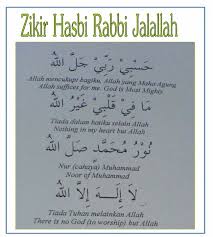 Zikir Hasbi Rabbi Jalallah
حَسْبِيْ رَبِّيْ جَلَّ اللهُ
Allah mencukupi bagiku, Allah yang Maha Agung
Allah suffices for me. God is Most Mighty
مَا فِيْ قَلْبِيْ غَيْرُ اللهُ
Tiada dalam hatiku selain Allah
Nothing in my heart but Allah
نُوْرُ مُحَمَّدٍ صَلَّ اللهُ
Nur (cahaya) Muhammad
Noor of Muhammad
لَا إِلَـٰهَ إِلَّا اللهُ
Tiada Tuhan melainkan Allah
There is no God (to worship) but Allah